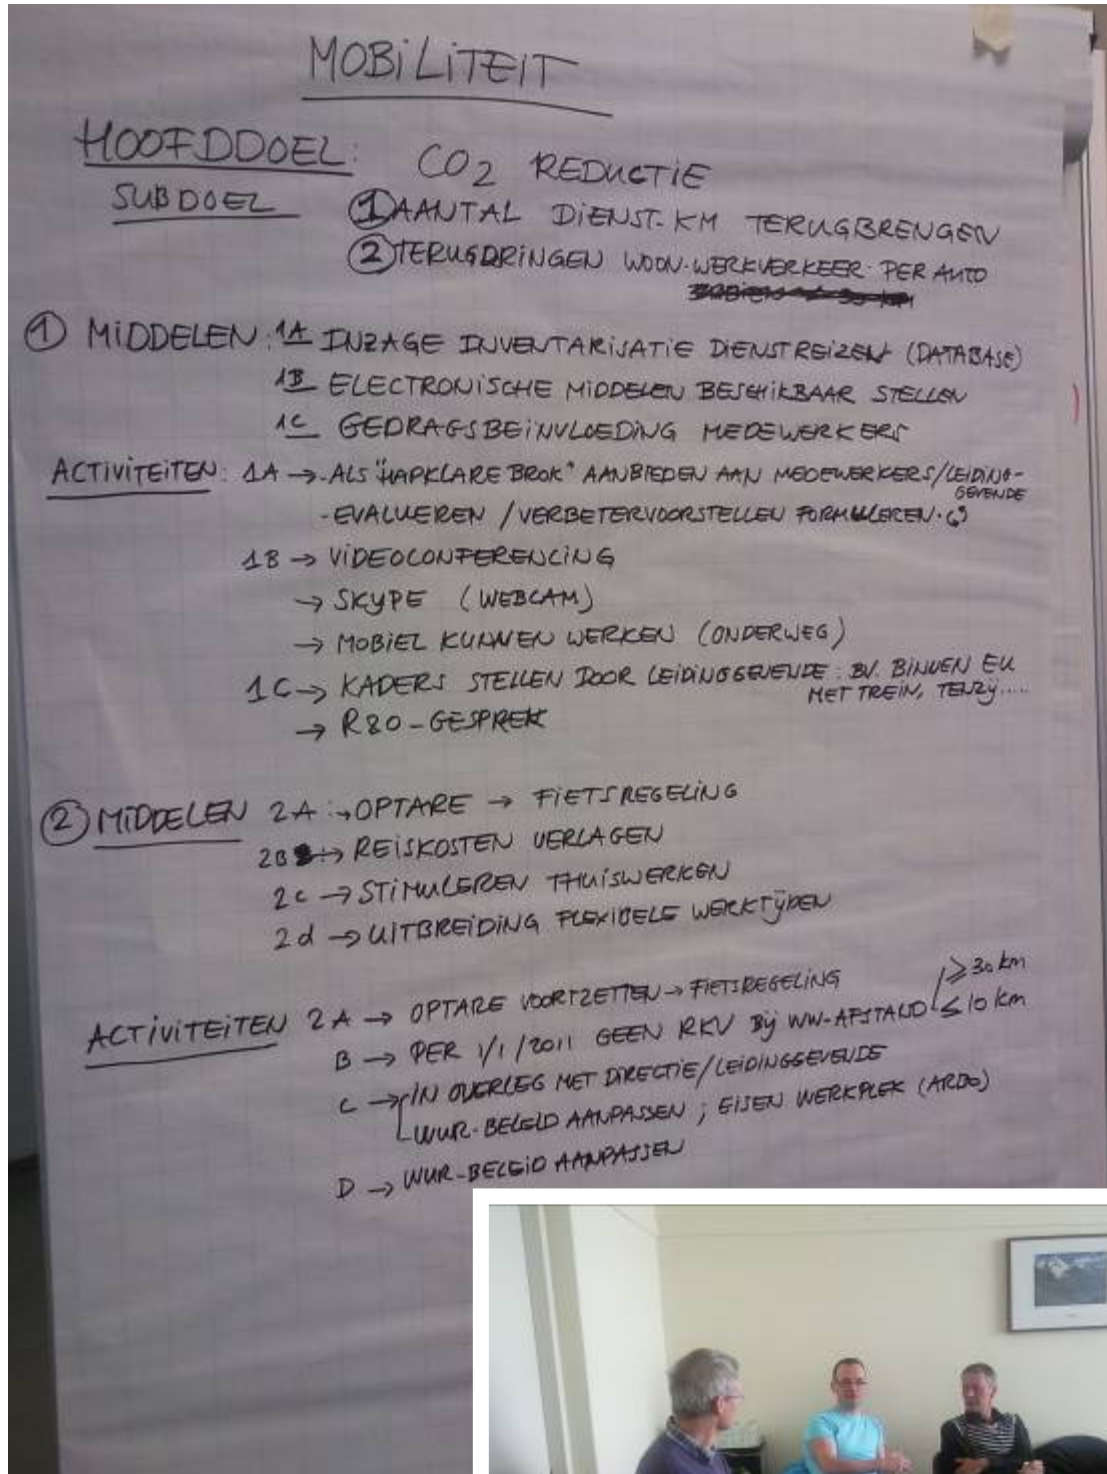 MOBILITEIT
HOOFDDOEL: CO2 REDUCTIE
SUBDOEL ① AANTAL DIENST-KM TERUGBRENGEN
② TERUGDRINGEN WOON-WERKVERKEER PER AUTO
① MIDDELEN: 1A INZAGE INVENTARISATIE DIENSTREIZEN (DATABASE)
1B ELECTRONISCHE MIDDELEN BESCHIKBAAR STELLEN
1C GEDRAGSBEINVLOEDING MEDEWERKERS
ACTIVITEITEN: 1A → - ALS "HAPKLARE BROK" AANBIEDEN AAN MEDEWERKERS/LEIDING-
GEVENDE
- EVALUEREN / VERBETERVOORSTELLEN FORMULEREN.
1B → VIDEOCONFERENCING
→ SKYPE (WEBCAM)
→ MOBIEL KUNNEN WERKEN (ONDERWEG)
1C → KADERS STELLEN DOOR LEIDINGGEVENDE: BV. BINNEN EU
MET TREIN, TENZIJ.....
→ R&O-GESPREK
② MIDDELEN 2A : → OPTARE → FIETSREGELING
2B → REISKOSTEN VERLAGEN
2C → STIMULEREN THUISWERKEN
2d → UITBREIDING FLEXIBELE WERKTIJDEN
ACTIVITEITEN 2A → OPTARE VOORTZETTEN → FIETSREGELING
B → PER 1/1/2011 GEEN RKV BIJ WW-AFSTAND ≥ 30 km
≤ 10 km
C → IN OVERLEG MET DIRECTIE/LEIDINGGEVENDE
WUR-BELEID AANPASSEN ; EISEN WERKPLEK (ARBO)
D → WUR-BELEID AANPASSEN